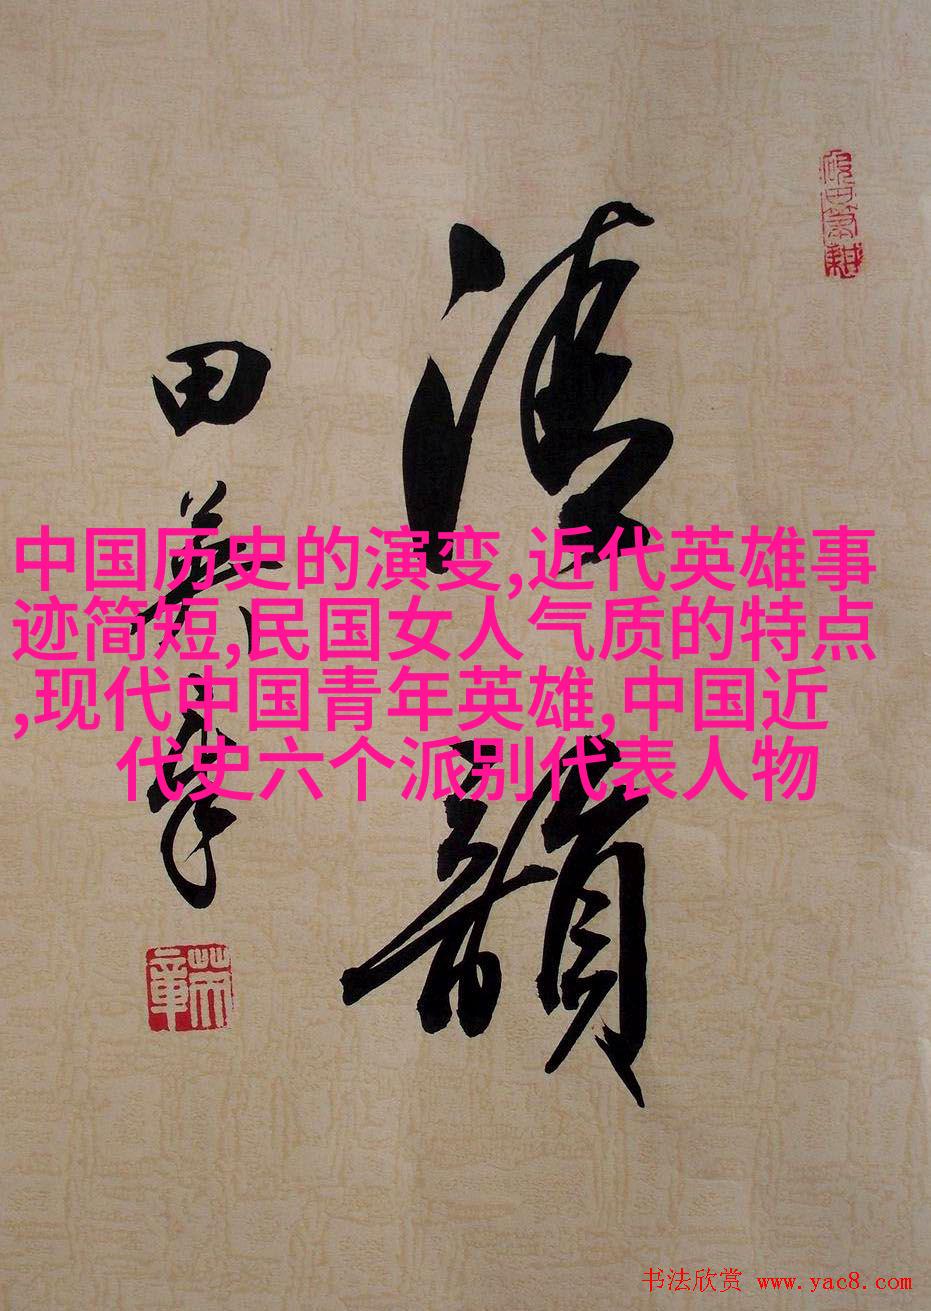 清韻
田英章
中国历史的演变,近代英雄事
迹简短,民国女人气质的特点
,现代中国青年英雄,中国近
代史六个派别代表人物
书法欣赏 www.yac8.com